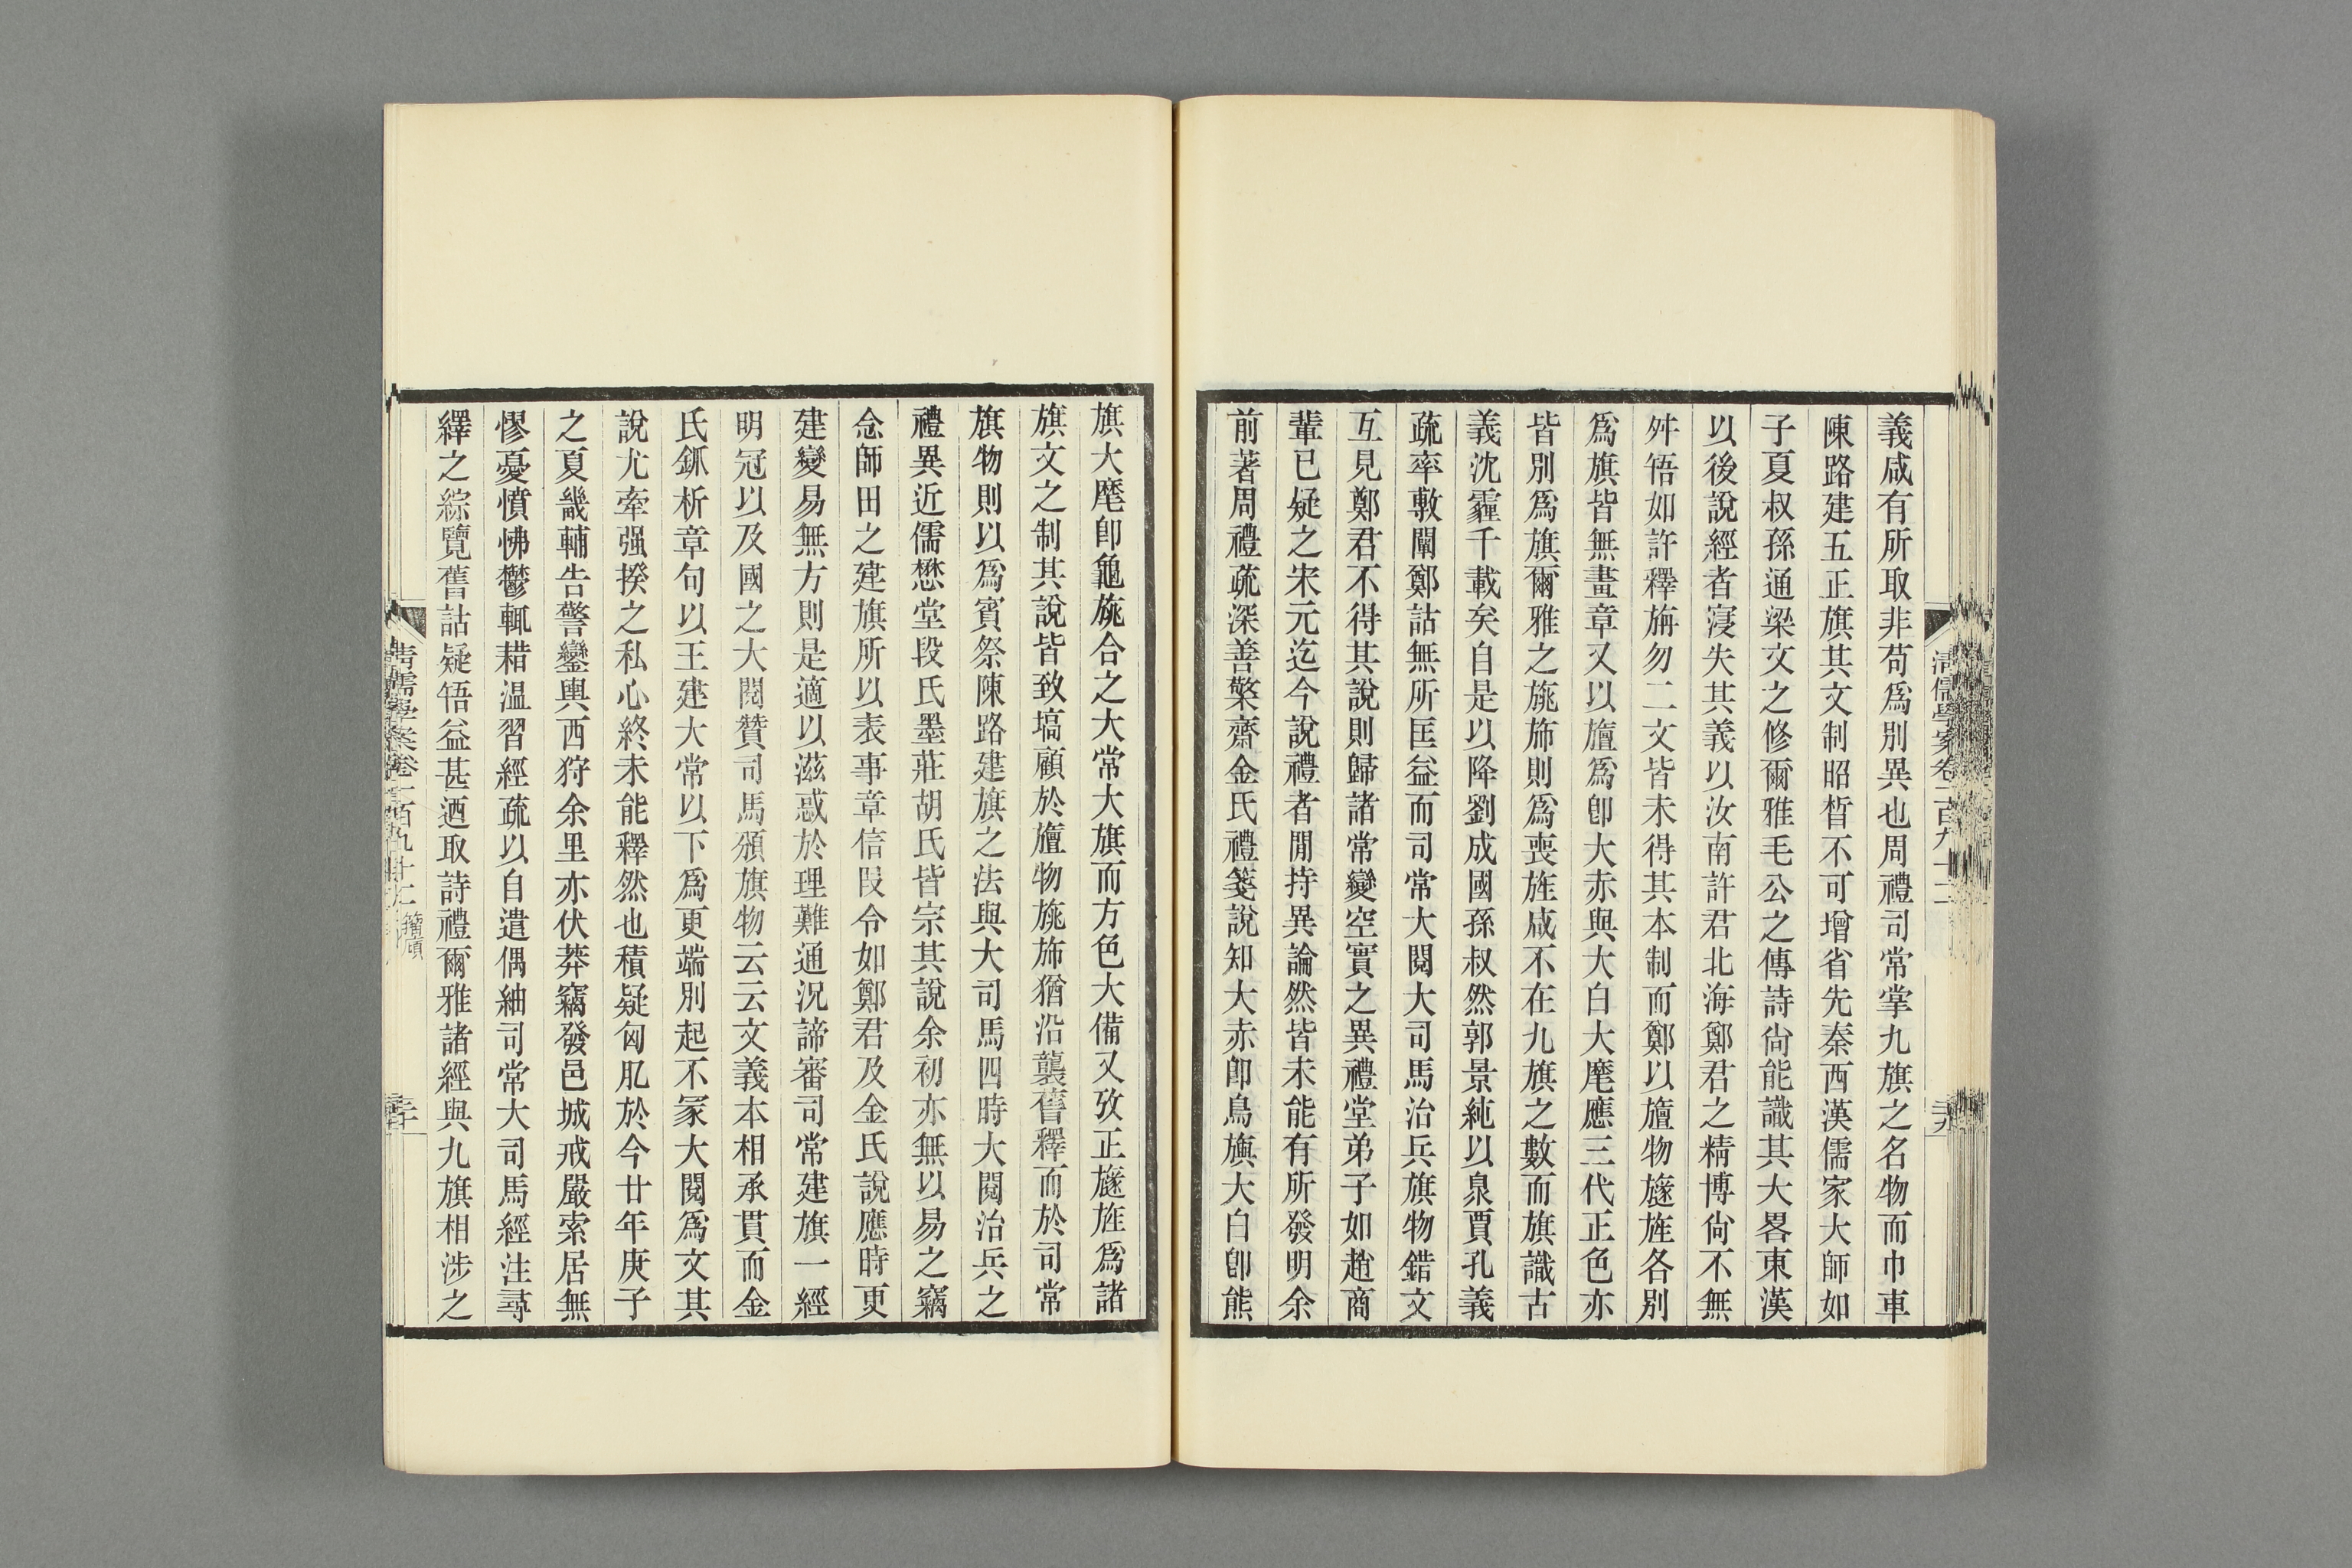 義咸有所取非苟爲別異也周禮司常掌九旗之名物而巾車
陳路建五正旗其文制昭晳不可增省先秦西漢儒家大師如
子夏叔孫通梁文之修爾雅毛公之傳詩尙能識其大畧東漢
以後說經者寖失其義以汝南許君北海鄭君之精博尙不無
舛啎如許釋旃勿二文皆未得其本制而鄭以旜物旞旌各別
爲旗皆無畫章又以旜爲卽大赤與大白大麾應三代正色亦
皆別爲旗爾雅之旐斾則爲喪旌咸不在九旗之數而旗識古
義沈霾千載矣自是以降劉成國孫叔然郭景純以臮賈孔義
疏率㪟闡鄭詁無所匡益而司常大閱大司馬治兵旗物錯文
互見鄭君不得其說則歸諸常變空實之異禮堂弟子如趙商
輩已疑之宋元迄今說禮者閒持異論然皆未能有所發明余
前著周禮疏深善檠齋金氏禮箋說知大赤卽鳥旟大白卽熊
旗大麾卽龜旐合之大常大旗而方色大備又攷正旞旌爲諸
旗文之制其說皆致塙顧於旜物旐斾猶沿襲舊釋而於司常
旗物則以爲賓祭陳路建旗之法與大司馬四時大閱治兵之
禮異近儒懋堂段氏墨莊胡氏皆宗其說余初亦無以易之竊
念師田之建旗所以表事章信叚令如鄭君及金氏說應時更
建變易無方則是適以滋惑於理難通況諦審司常建旗一經
明冠以及國之大閱贊司馬頒旗物云云文義本相承貫而金
氏鈲析章句以王建大常以下爲更端別起不冡大閱爲文其
說尤牽强揆之私心終未能釋然也積疑匈肊於今廿年庚子
之夏畿輔告警鑾輿西狩余里亦伏莽竊發邑城戒嚴索居無
憀憂憤怫鬱輒耤温習經疏以自遣偶紬司常大司馬經注尋
繹之綜覽舊詁疑啎益甚迺取詩禮爾雅諸經與九旗相涉之